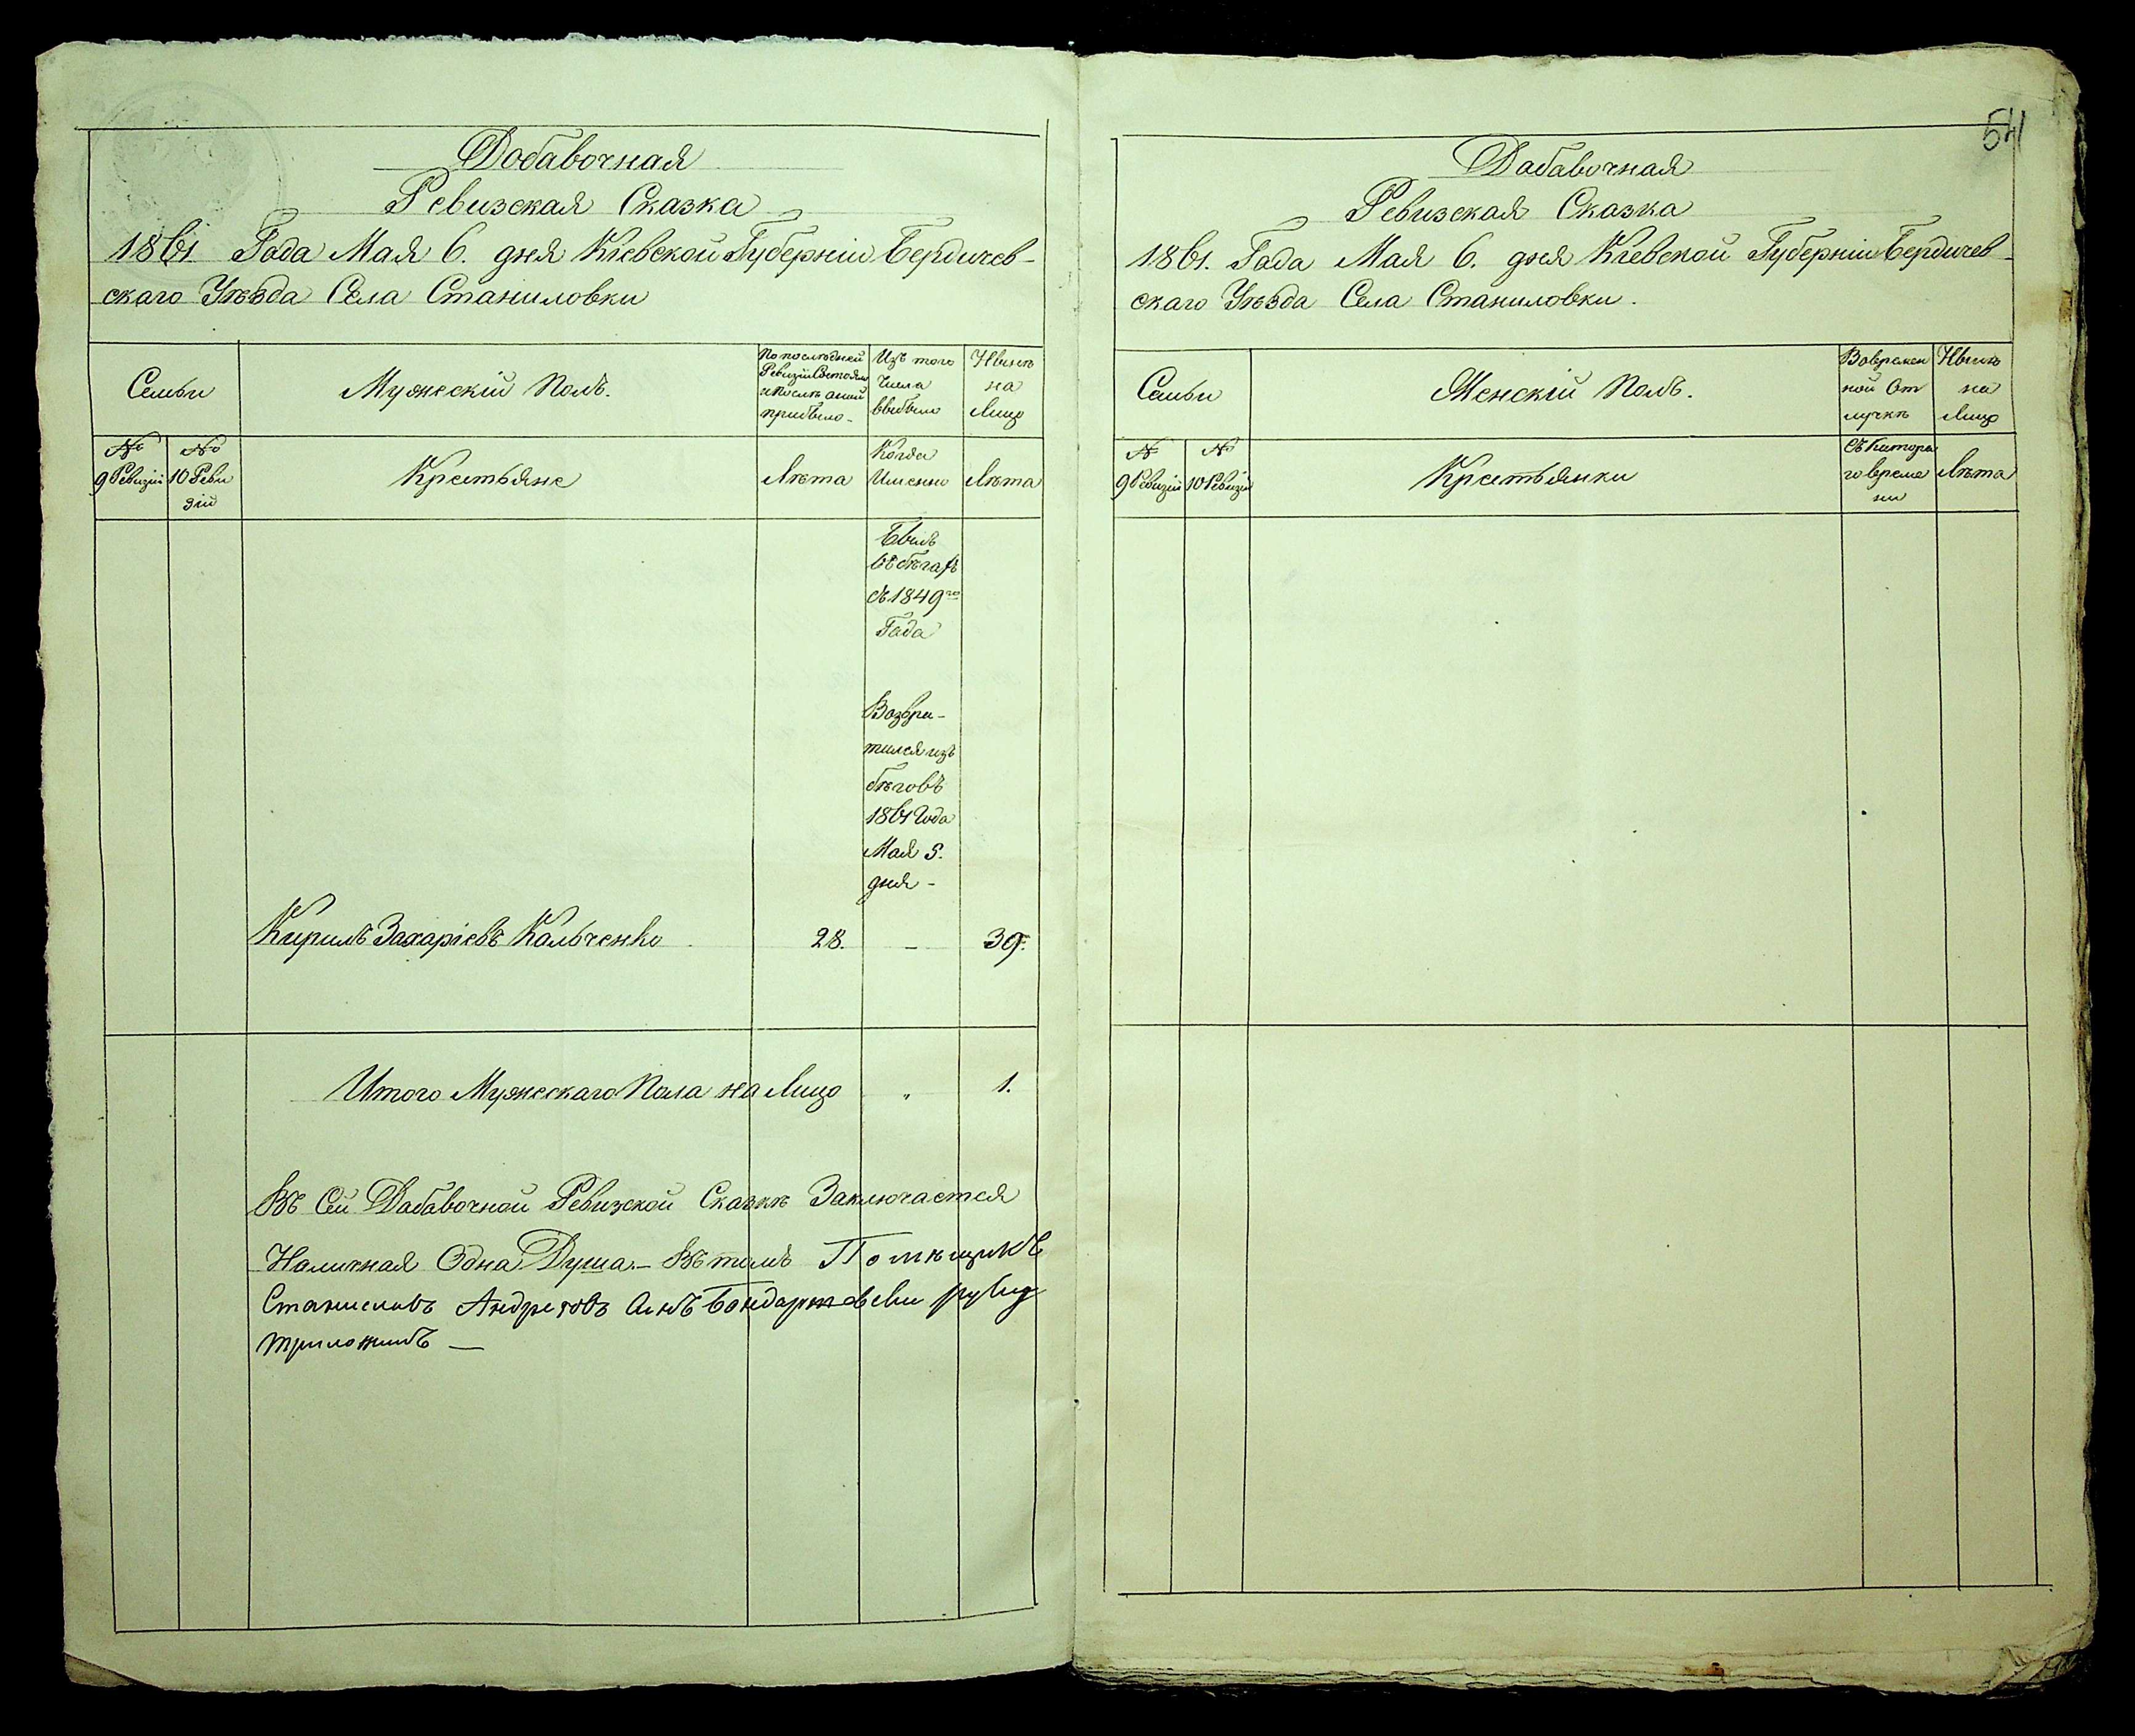 Добавочная
Ревизская Сказка
1861 Года Мая 6. дня Кіевской Губерніи Бердичев-
скаго Уѣзда Села Станиловки
Семьи
Мужескій Полъ.
По послѣдней
Ревизіи Состояло
и послѣ оной
прибыло-
Изъ того
Числа
выбыло
Нынѣ
на
Лицо
№
9 Ревизіи
№
10 Реви
зіи
Крестьяне
Лѣта
Когда
Именно
Лѣта
Былъ
въ бѣгахъ
съ 1849го
Года
Возвра-
тился изъ
бѣговъ
1861 Года
Мая 5.
дня -
Кирилъ Захаріевъ Кальченко 28. — 39.
Итого Мужескаго Пола на Лицо „ 1.
Въ Сей Дабавочной Ревизской Сказкѣ Заключается
Наличная Одна Душа.- Въ томъ Помѣщикъ
Станиславъ Андреевъ Сынъ руку
приложилъ —
541
Дабавочная
Ревизская Сказка
1861. Года Мая 6. дня Кіевской Губерніи Бердичев-
скаго Уѣзда Села Станиловки.
Семьи
Женскій Полъ.
Вовремен
ной От
лучкѣ
Нынѣ
на
Лицо
№
9 Ревизіи
№
10 Ревизіи
Крестьянки
Съ Катора
го време
ни
Лѣта